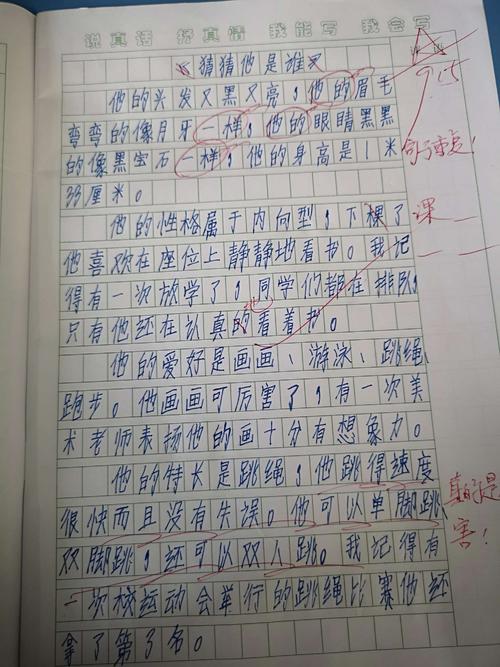 说真话 抒真情 我能写 我会写
猜猜他是谁
他的头发又黑又亮，他的眉毛
弯弯的像月牙一样，他的眼睛黑黑
的像黑宝石一样，他的身高是1米
33厘米。
他的性格属于内向型，下棵了
课
他喜欢在座位上静静地看书。我记
得有一次放学了，同学们都在排队，
只有他还在认真的看着书。
他的爱好是画画、游泳、跳绳
跑步。他画画可厉害了，有一次美
术老师表扬他的画十分有想象力。
他的特长是跳绳，他跳得速度
很快而且没有失误。他可以单脚跳
双脚跳，还可以双人跳。我记得有
一次校运动会举行的跳绳比赛他还
拿了第3名。